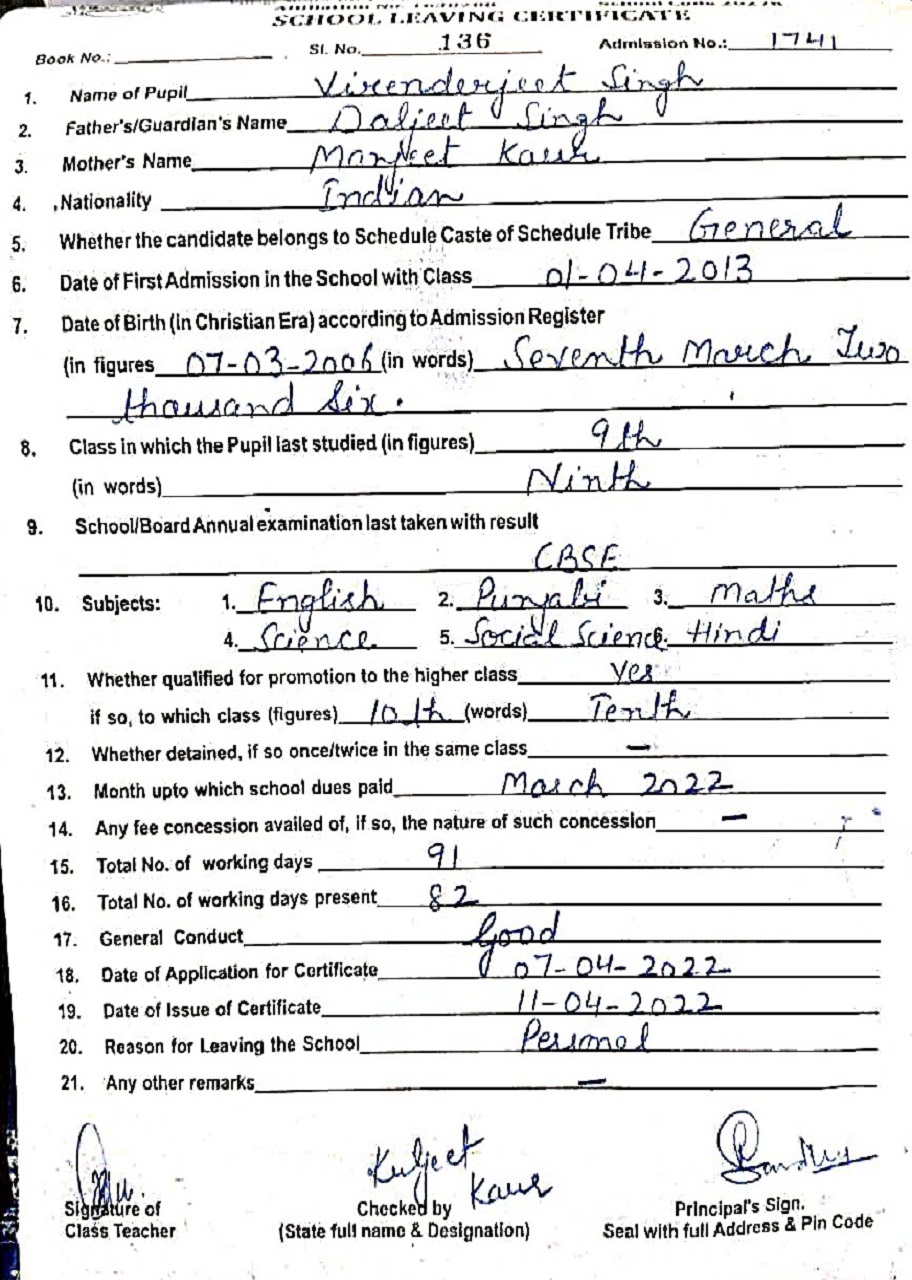 SCHOOL LEAVING CERTIFICATE
Book No.: Sl. No. 136 Admission No.: 1741
1. Name of Pupil Virenderjeet Singh
2. Father's/Guardian's Name Daljeet Singh
3. Mother's Name Manjeet Kaur
4. Nationality Indian
5. Whether the candidate belongs to Schedule Caste of Schedule Tribe General
6. Date of First Admission in the School with Class 01-04-2013
7. Date of Birth (in Christian Era) according to Admission Register
(in figures 07-03-2006 (in words) Seventh March Two
thousand Six.
8. Class in which the Pupil last studied (in figures) 9th
(in words) Ninth
9. School/Board Annual examination last taken with result
CBSE
10. Subjects: 1. English 2. Punjabi 3. Maths
4. Science 5. Social Science 6. Hindi
11. Whether qualified for promotion to the higher class yes
if so, to which class (figures) 10th (words) Tenth
12. Whether detained, if so once/twice in the same class —
13. Month upto which school dues paid March 2022
14. Any fee concession availed of, if so, the nature of such concession —
15. Total No. of working days 91
16. Total No. of working days present 82
17. General Conduct Good
18. Date of Application for Certificate 07-04-2022
19. Date of Issue of Certificate 11-04-2022
20. Reason for Leaving the School Personal
21. Any other remarks —
Kuljeet
Kaur
Signature of Checked by Principal's Sign.
Class Teacher (State full name & Designation) Seal with full Address & Pin Code